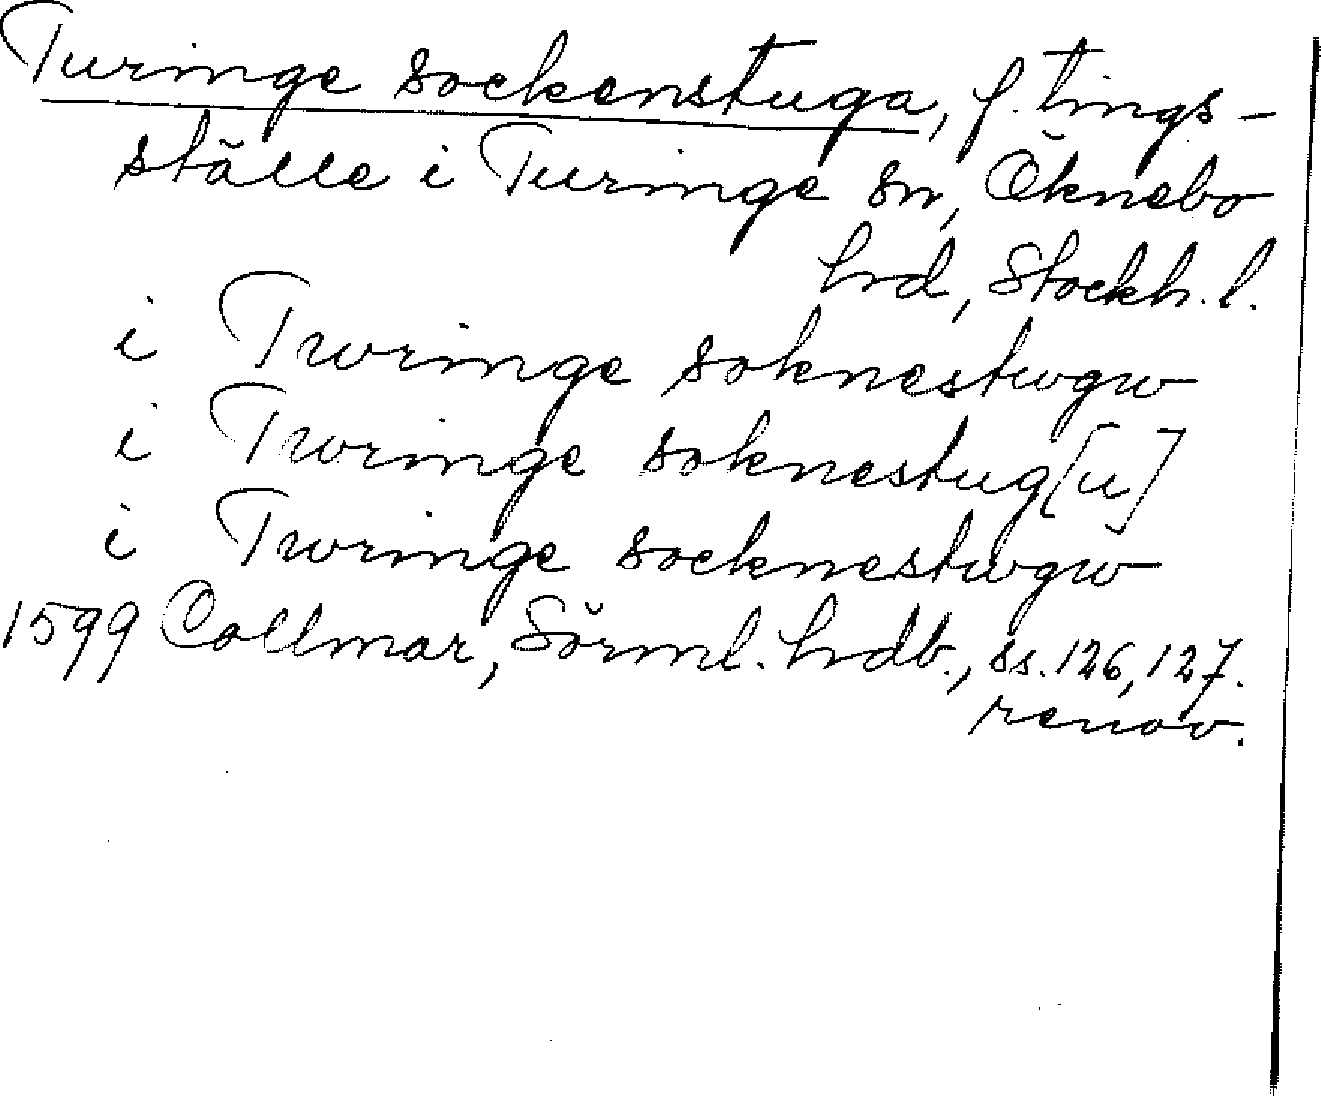 Turinge sockenstuga, f. tings-
ställe i Turinge sn, Öknebo
hrd, Stockh. l.
i Twringe soknestwgw
i Twringe soknestug[u]
i Twringe socknestwgw
1599 Collmar, Sörml. hrdb., ss. 126, 127.
renov.